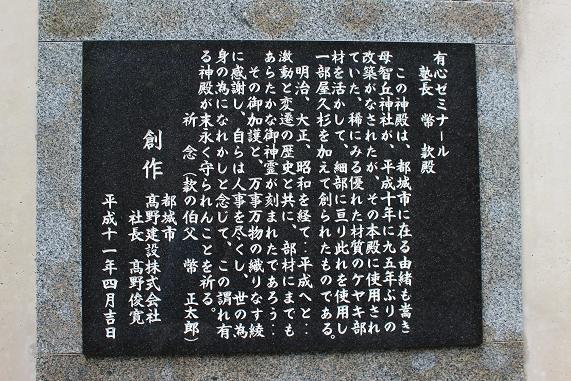 有心ゼミナール
塾長　幣　歎殿
この神殿は、都城市に在る由緒も嵩き
母智丘神社が、平成十年に九五年ぶりの
改築がなされたが、その本殿に使用され
ていた、稀にみる優れた材質のケヤキ部
材を活かして、細部に亘り此れを使用し
一部屋久杉を加えて創られたものである。
明治、大正、昭和を経て…平成へと…
激動と変遷の歴史と共に、部材にまでも
あらたかな御神霊が刻まれたであろう…
その御加護と、万事万物の織りなす綾
に感謝し、自らは人事を尽くし、世の為
身の為になれかしと念じて、この謂れ有
る神殿が末永く守られんことを祈る。
祈　念（歎の伯父　幣　正太郎）
創作
都城市
髙野建設株式会社
社長　髙野俊寛
平成十一年四月吉日